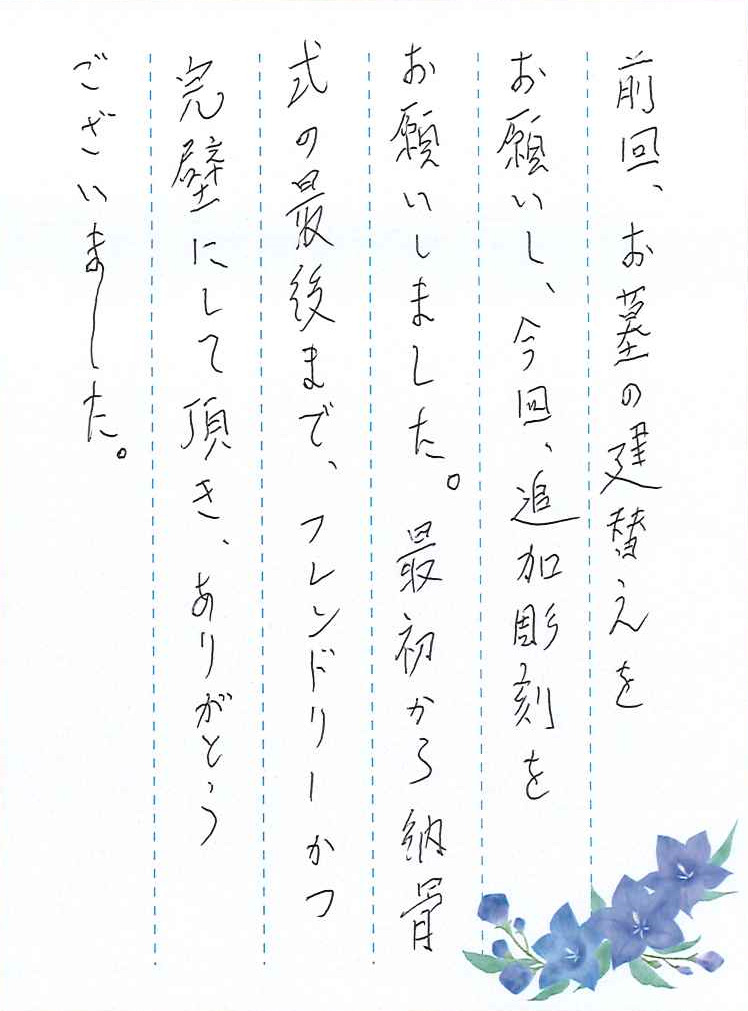 前回、お墓の建替えを
お願いし、今回、追加彫刻を
お願いしました。最初から納骨
式の最後まで、フレンドリーかつ
完璧にして頂き、ありがとう
ございました。